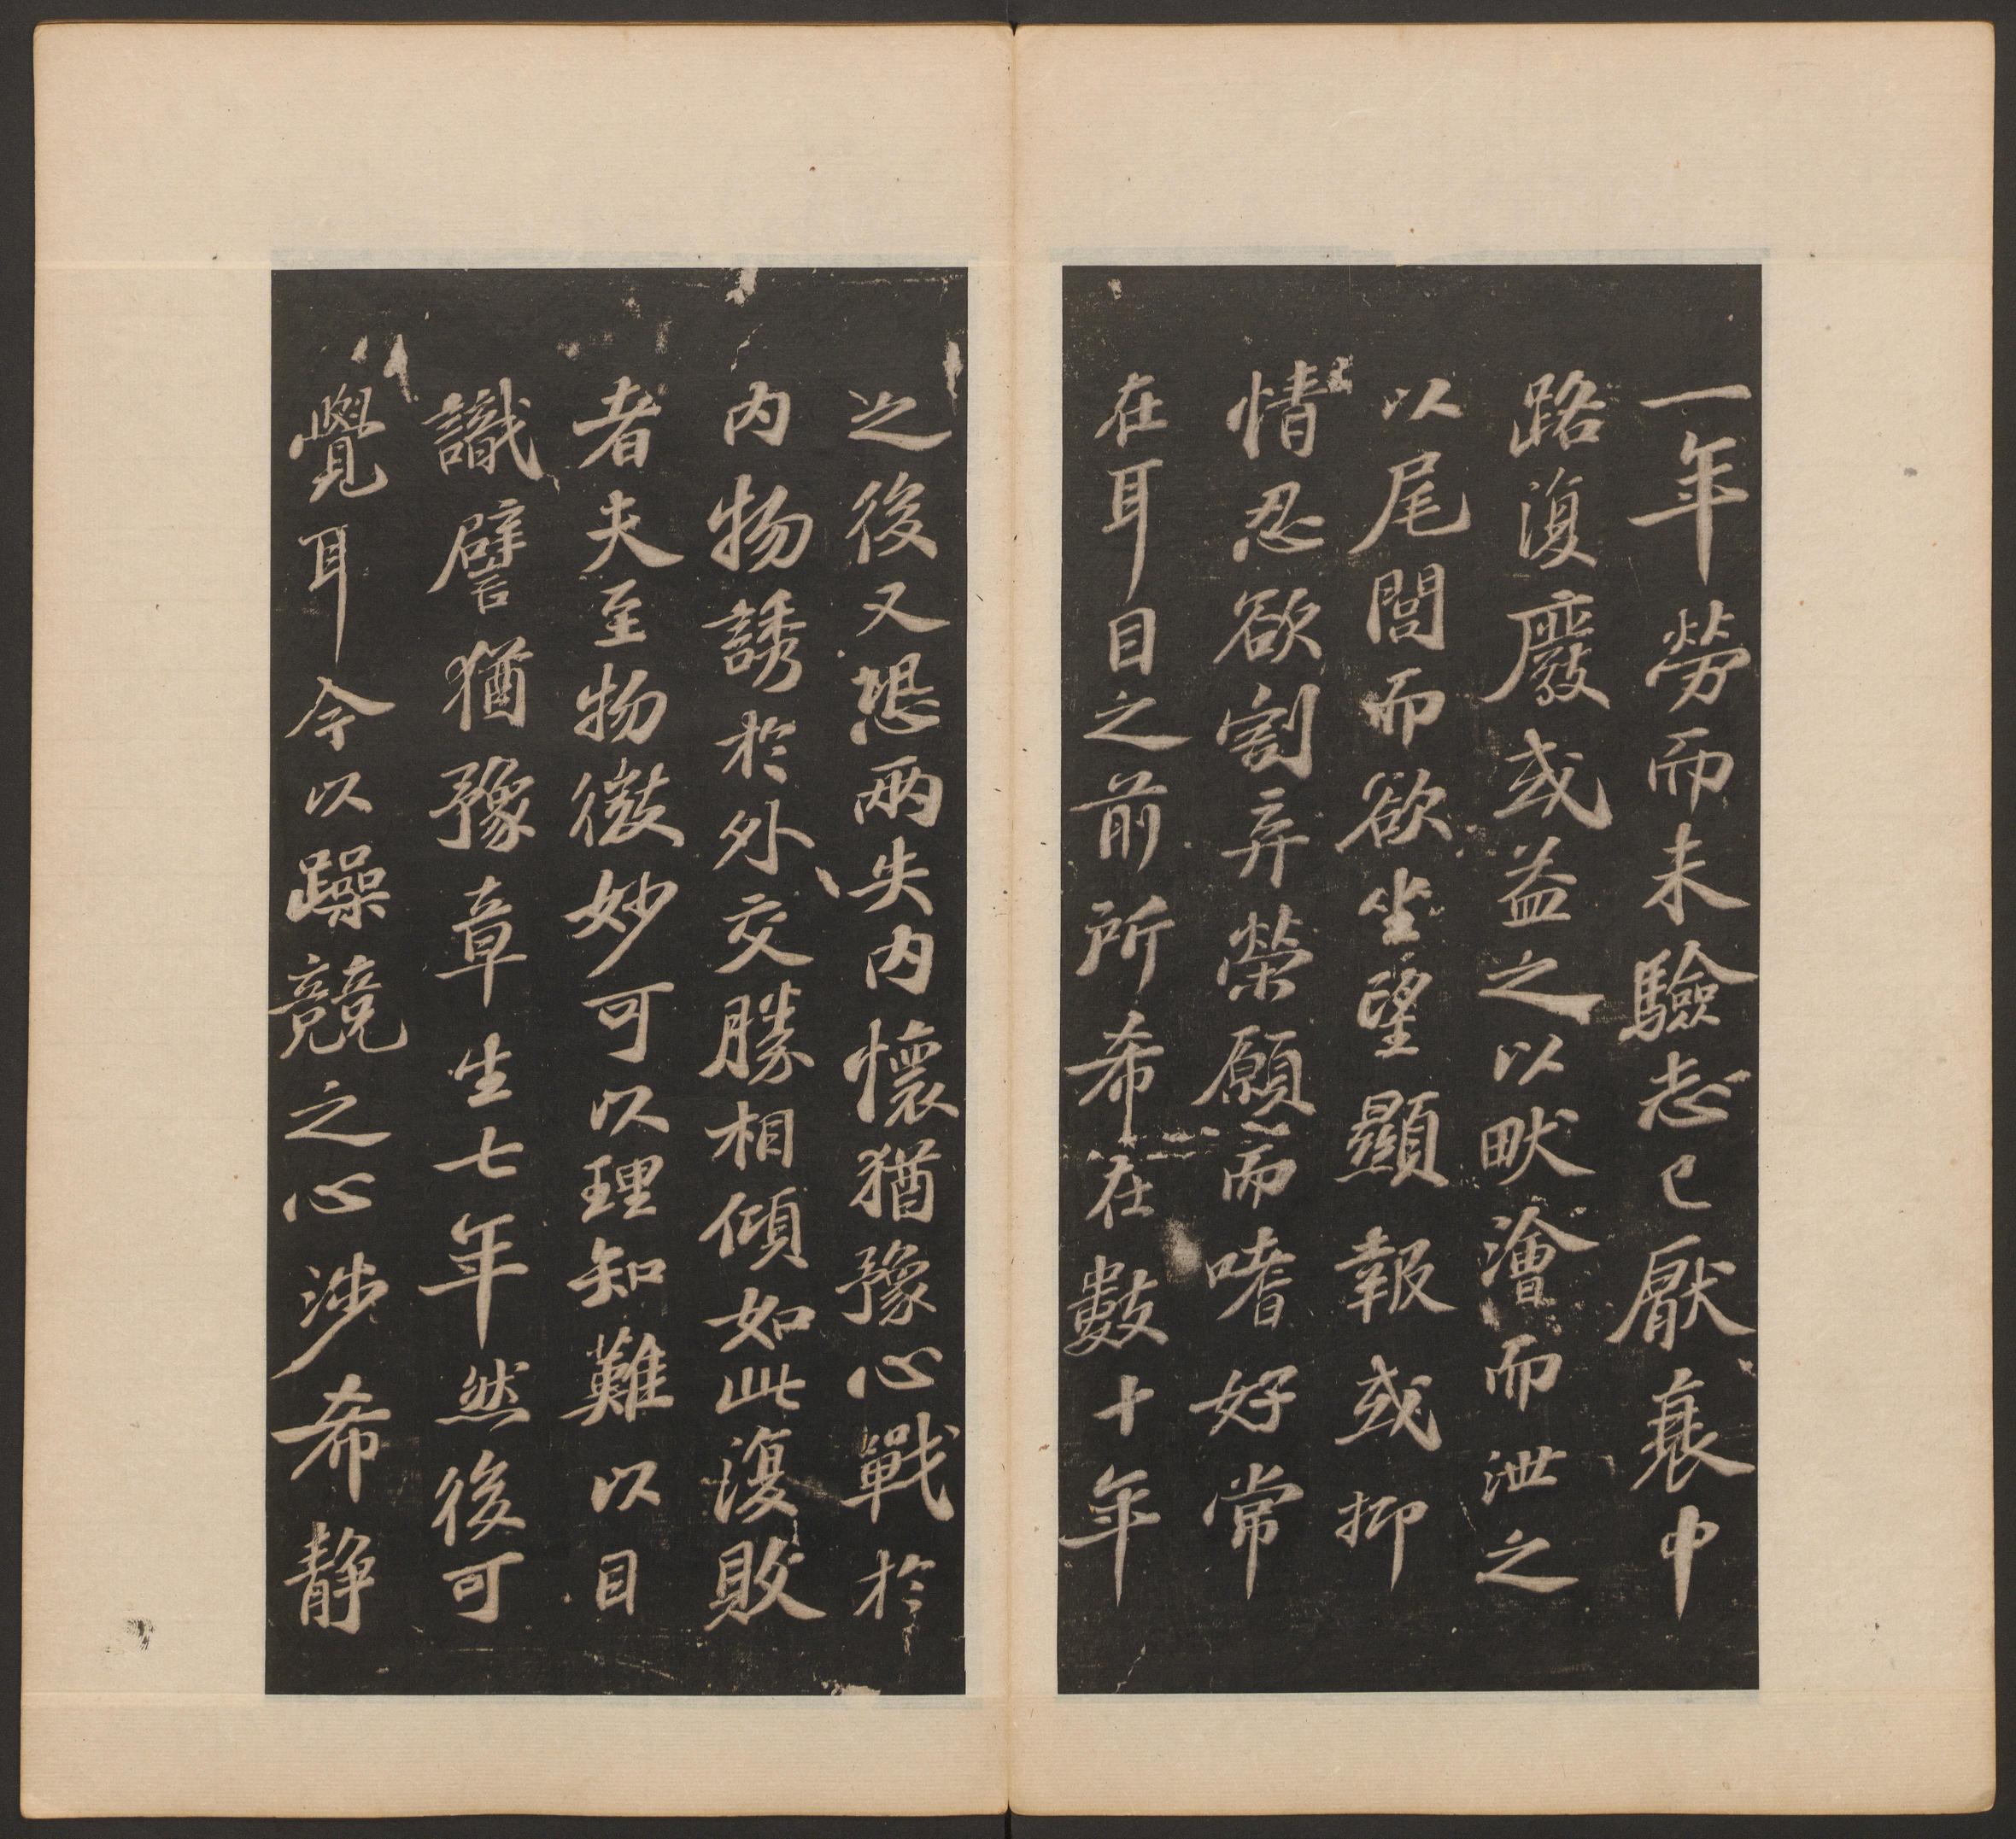 一年勞而未驗志已厭衰中
路復廢或益之以畎澮而泄之
以尾閭而欲坐望顯報或抑
情忍欲割弃榮願而嗜好常
在耳目之前所希在數十年
之後又恐兩失内懷猶豫心戰於
内物誘於外交勝相傾如此復敗
者夫至物微妙可以理知難以目
識譬猶豫章生七年然後可
覺耳今以躁競之心涉希静